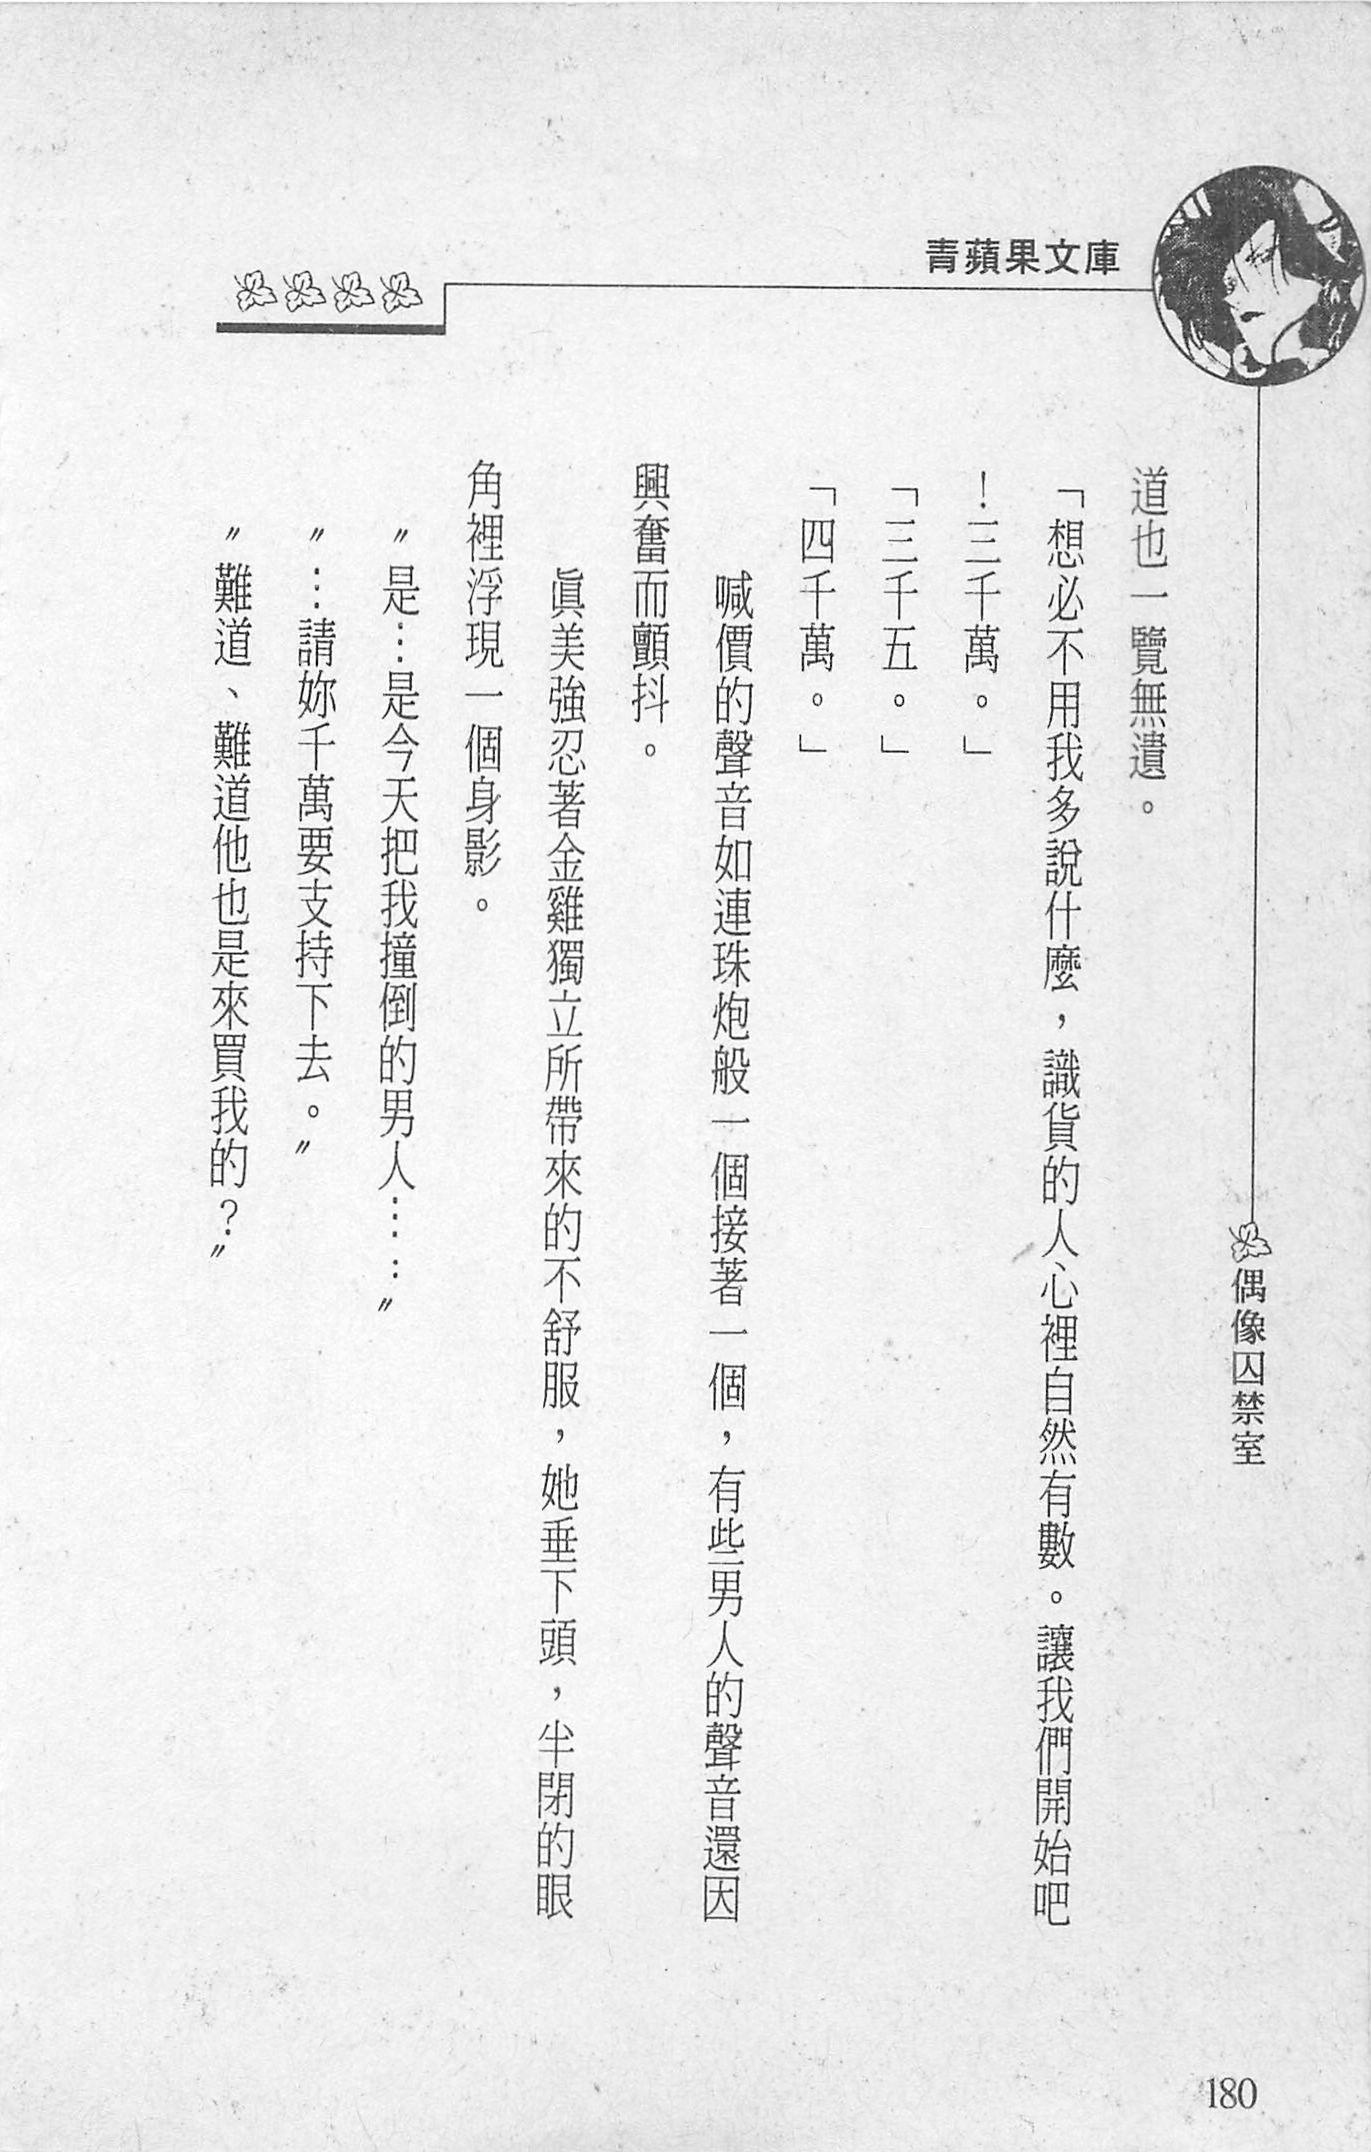 青蘋果文庫
偶像囚禁室
道也一覽無遺。
「想必不用我多說什麼，識貨的人心裡自然有數。讓我們開始吧
！三千萬。」
「三千五。」
「四千萬。」
喊價的聲音如連珠炮般一個接著一個，有些男人的聲音還因
興奮而顫抖。
眞美強忍著金雞獨立所帶來的不舒服，她垂下頭，半閉的眼
角裡浮現一個身影。
〝是…是今天把我撞倒的男人……〞
〝…請妳千萬要支持下去。〞
〝難道、難道他也是來買我的？〞
180